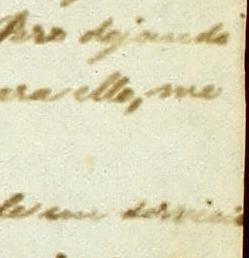 Pero dejando
para ello, me
de un servicio